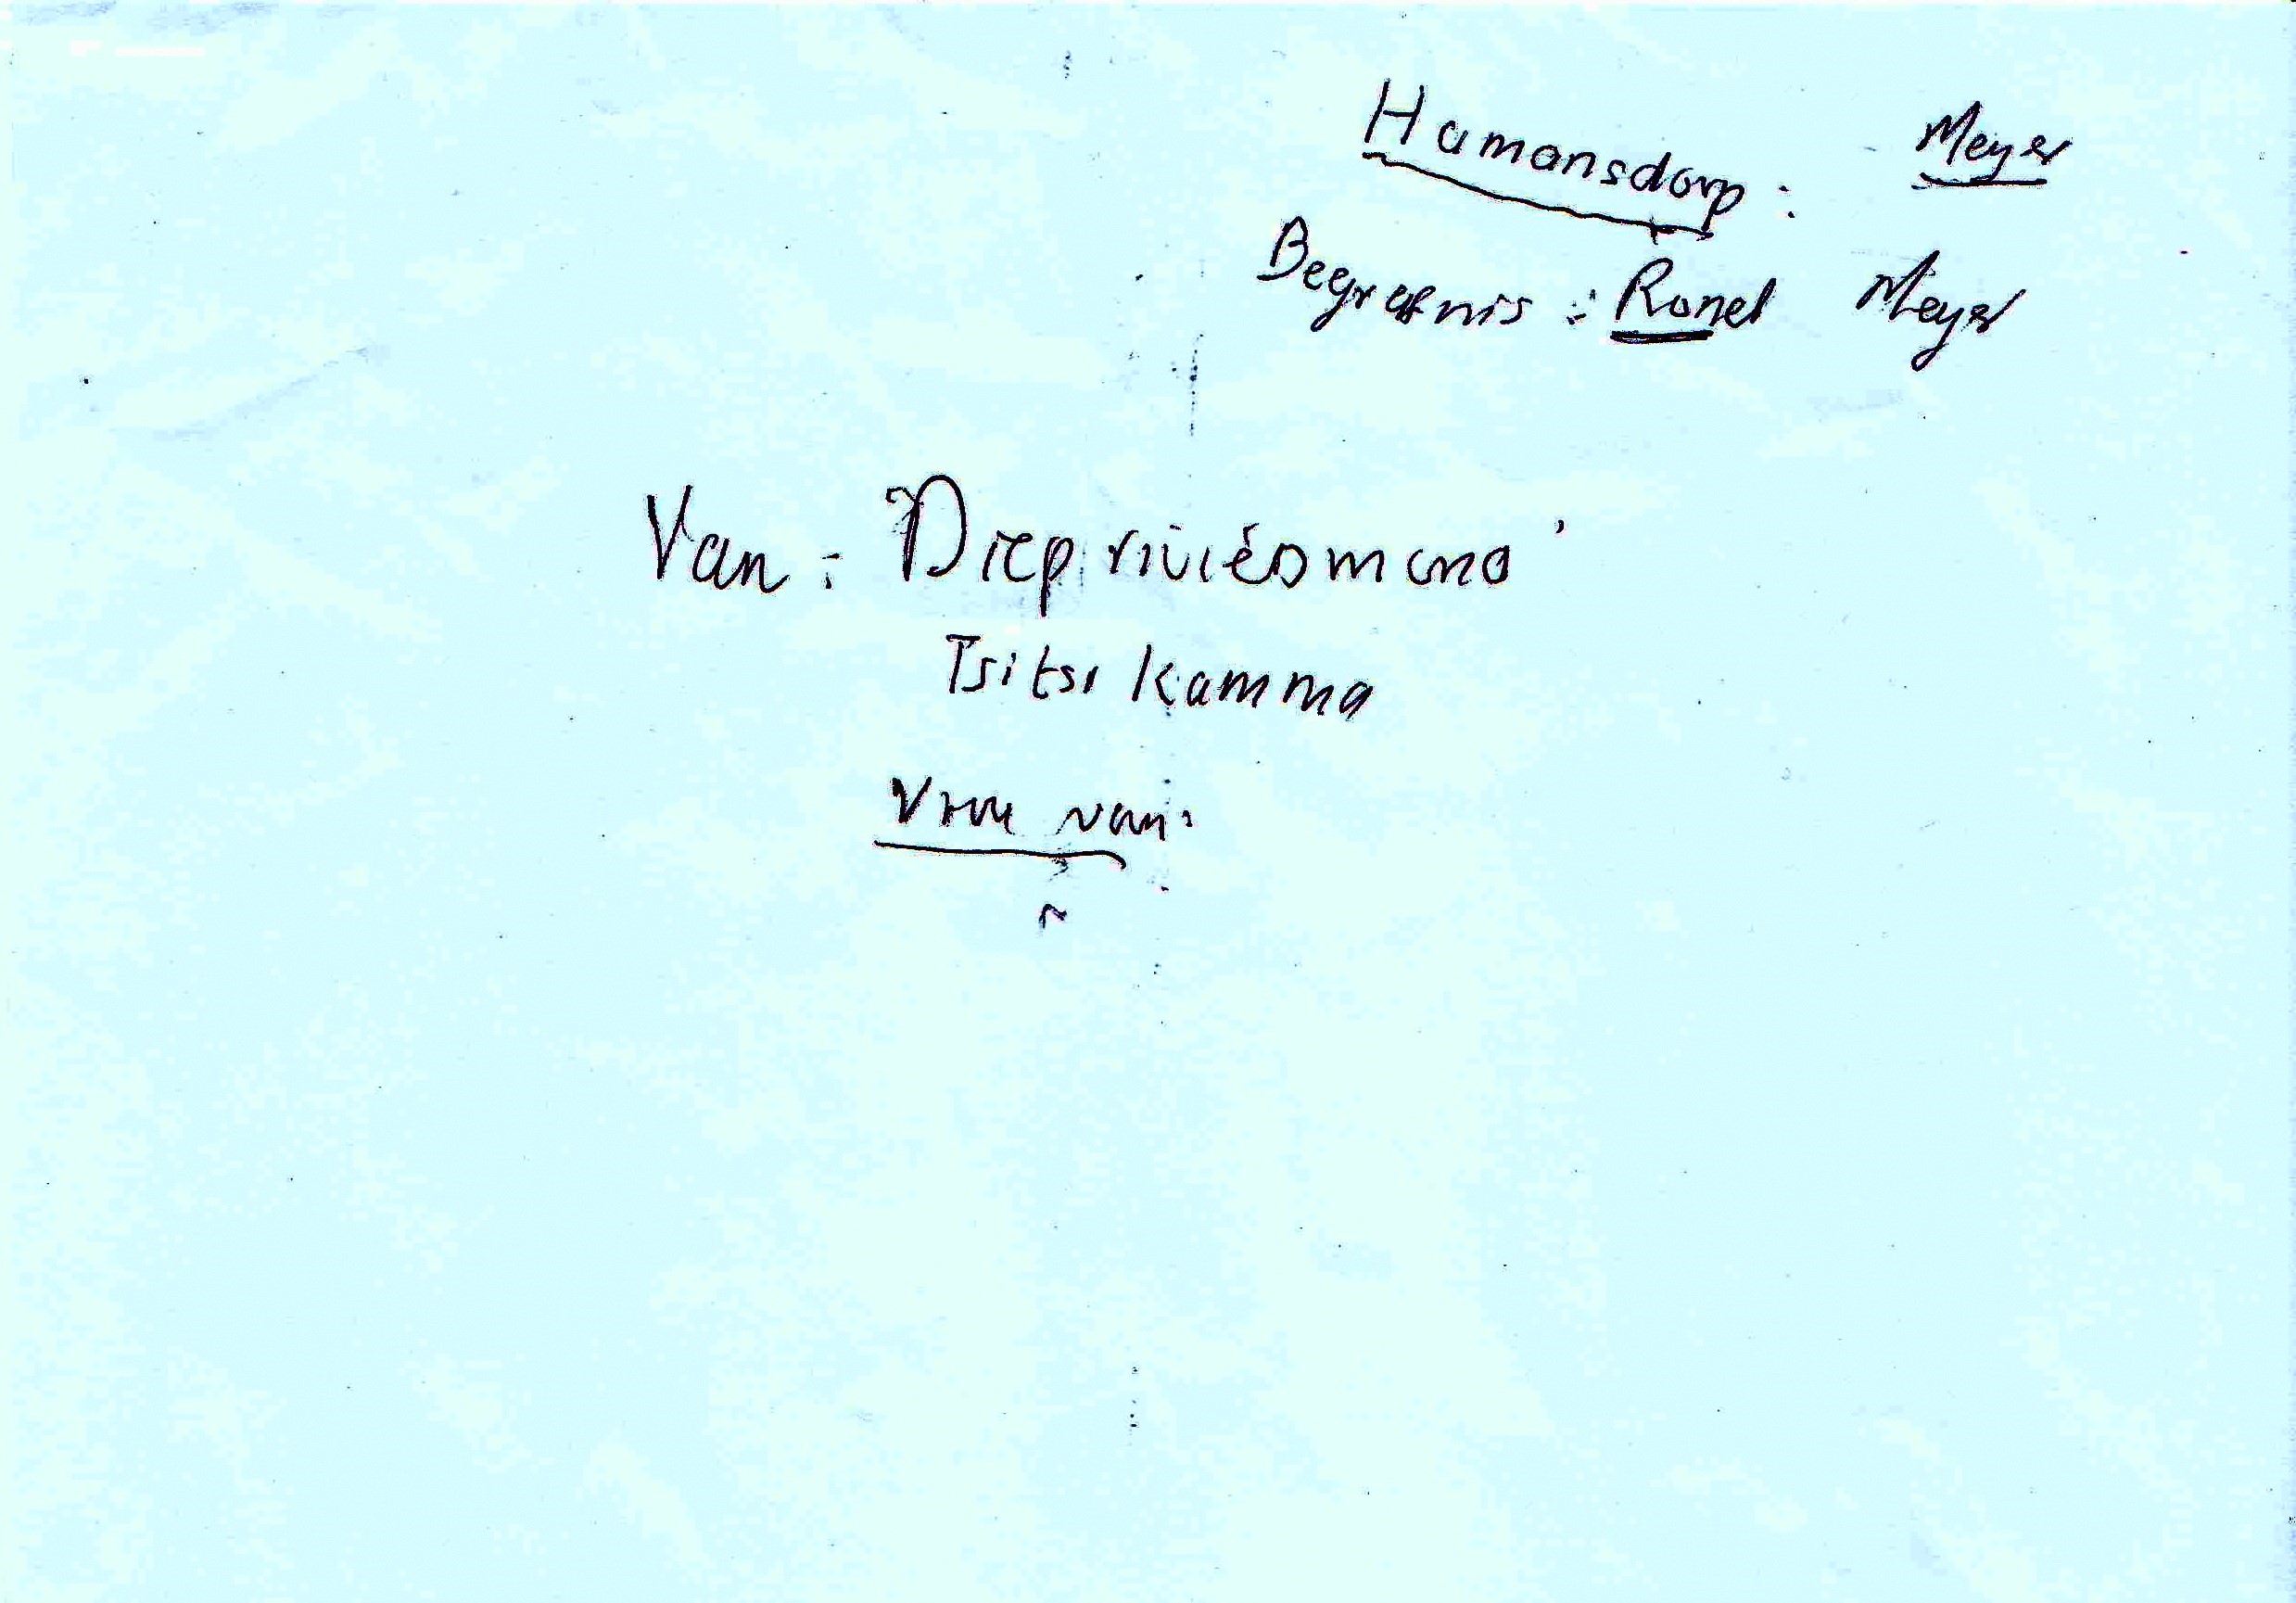 Humansdorp : Meyer
Begrafnis : Ronel Meyer
Van : Diepriviersmond
Tsitsikamma
Vrou van: